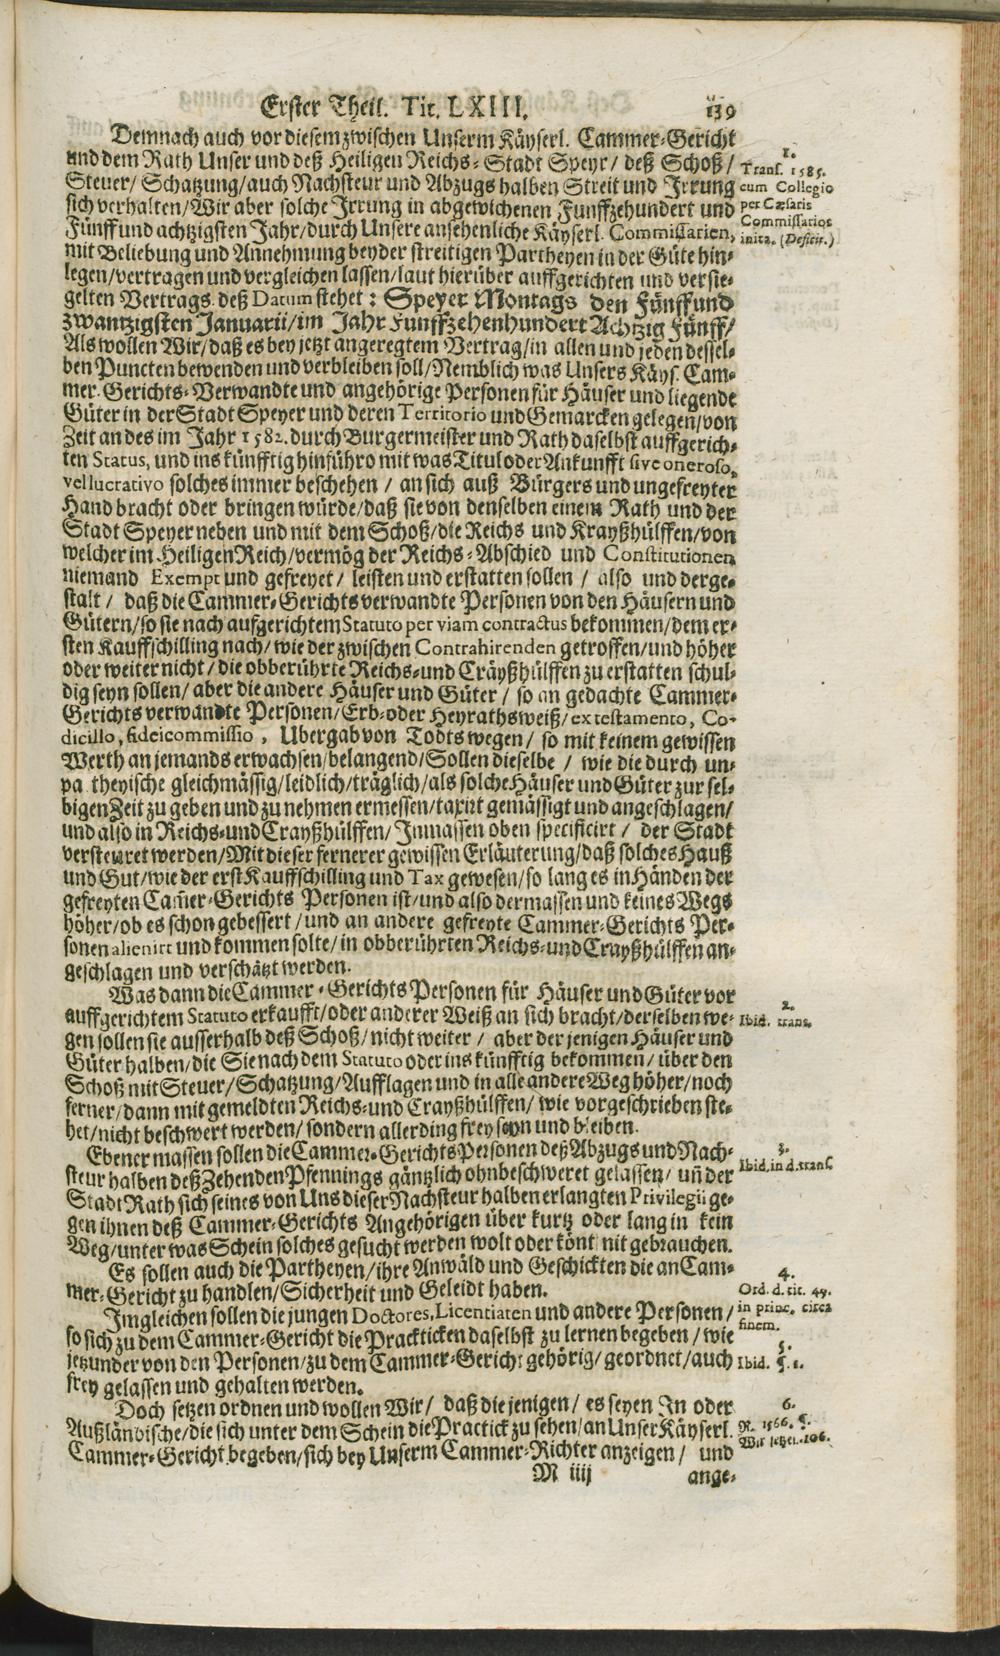 Erster Theil. Tit. LXIII. 139
Demnach auch vor diesem zwischen Unserm Käyserl. Cammer-Gericht
und dem Rath Unser und deß Heiligen Reichs-Stadt Speyr/ deß Schoß/
Steuer/ Schatzung/auch Nachsteur und Abzugs halben Streit und Irrung
sich verhalten/Wir aber solche Irrung in abgewichenen Funffzehundert und
Fünff und achtzigsten Jahr/durch Unsere ansehenliche Käyserl. Commissarien,
mit Beliebung und Annehmung beyder streitigen Partheyen in der Güte hin-
legen/vertragen und vergleichen lassen/laut hierüber auffgerichten und versie-
gelten Vertrags. deß Datum stehet: Speyer Montags den Fünff und
zwantzigsten Januarii/im Jahr Funffzehenhundert Achtzig Fünff/
Als wollen Wir/daß es bey jetzt angeregtem Vertrag/in allen und jeden dessel-
ben Puncten bewenden und verbleiben soll/Nemblich was Unsers Käys. Cam-
mer-Gerichts-Verwandte und angehörige Personen für Häuser und liegende
Güter in der Stadt Speyer und deren Territorio und Gemarcken gelegen/von
Zeit an des im Jahr 1582. durch Burgermeister und Rath daselbst auffgerich-
ten Status, und ins künfftig hinführo mit was Titul oder Ankunfft sive oneroso,
vel lucrativo solches immer beschehen / an sich auß Bürgers und ungefreyter
Hand bracht oder bringen würde/daß sie von denselben einem Rath und der
Stadt Speyer neben und mit dem Schoß/die Reichs und Krayßhülffen/von
welcher im Heiligen Reich/vermög der Reichs-Abschied und Constitutionen
niemand Exempt und gefreyet / leisten und erstatten sollen / also und derge-
stalt / daß die Cammer-Gerichts verwandte Personen von den Häusern und
Gütern/so sie nach aufgerichtem Statuto per viam contractus bekommen/dem er-
sten Kauffschilling nach/wie der zwischen Contrahirenden getroffen/und höher
oder weiter nicht/die obberührte Reichs-und Cräyßhülffen zu erstatten schul-
dig seyn sollen/ aber die andere Häuser und Güter / so an gedachte Cammer-
Gerichts verwandte Personen/Erb-oder Heyrathsweiß/ex testamento, Co-
dicillo, fideicommissio, Ubergab von Todts wegen/ so mit keinem gewissen
Werth an jemands erwachsen/belangend/Sollen dieselbe / wie die durch un-
pa theyische gleichmässig/leidlich/träglich/als solche Häuser und Güter zur sel-
bigen Zeit zu geben und zu nehmen ermessen/taxirt gemässigt und angeschlagen/
und also in Reichs-und Crayßhülffen/ Inmassen oben specificirt / der Stadt
versteuret werden/Mit dieser fernerer gewissen Erläuterung/daß solches Hauß
und Gut/wie der erst Kauffschilling und Tax gewesen/so lang es in Händen der
gefreyten Cam̃er-Gerichts Personen ist/und also dermassen und keines Wegs
höher/ob es schon gebessert/und an andere gefreyte Cammer-Gerichts Per-
sonen alienirt und kommen solte/in obberührten Reichs-und Crayßhülffen an-
geschlagen und verschätzt werden.
Was dann die Cammer-Gerichts Personen für Häuser und Güter vor
auffgerichtem Statuto erkaufft/oder anderer Weiß an sich bracht/derselben we-
gen sollen sie ausserhalb deß Schoß/nicht weiter / aber der jenigen Häuser und
Güter halben/die Sie nach dem Statuto oder ins künfftig bekommen/ über den
Schoß mit Steuer/Schatzung/Aufflagen und in alle andere Weg höher/noch
ferner/dann mit gemeldten Reichs-und Crayßhülffen/ wie vorgeschrieben ste-
het/nicht beschwert werden/sondern allerding frey seyn und bleiben.
Ebener massen sollen die Cammer-Gerichts Personen deß Abzugs und Nach-
steur halben deß Zehenden Pfennings gäntzlich ohnbeschweret gelassen/ uñ der
Stadt Rath sich seines von Uns dieser Nachsteur halben erlangten Privilegii ge-
gen ihnen deß Cammer-Gerichts Angehörigen über kurtz oder lang in kein
Weg/unter was Schein solches gesucht werden wolt oder könt nit gebrauchen.
Es sollen auch die Partheyen/ihre Anwäld und Geschickten die an Cam-
mer-Gericht zu handlen/Sicherheit und Geleidt haben.
Imgleichen sollen die jungen Doctores, Licentiaten und andere Personen/
so sich zu dem Cammer-Gericht die Prackticken daselbst zu lernen begeben/wie
jetzunder von den Personen/zu dem Cammer-Gericht gehörig/geordnet/auch
frey gelassen und gehalten werden.
Doch setzen ordnen und wollen Wir/ daß die jenigen/ es seyen In oder
Außländische/die sich unter dem Schein die Practick zu sehen/an Unser Käyserl.
Cammer-Gericht begeben/sich bey Unserm Cammer-Richter anzeigen/ und
M iiij ange-
1.
Trans. 1585.
cum Collegio
per Cæsaris
Commissarios
inita. (Deficit.)
2.
Ibid. trans.
3.
Ibid. in d. trans.
4.
Ord. d. tit. 49.
in princ. circa
finem.
5.
Ibid. §. 1.
6.
R. 1566. §.
Wir setzen. 106.